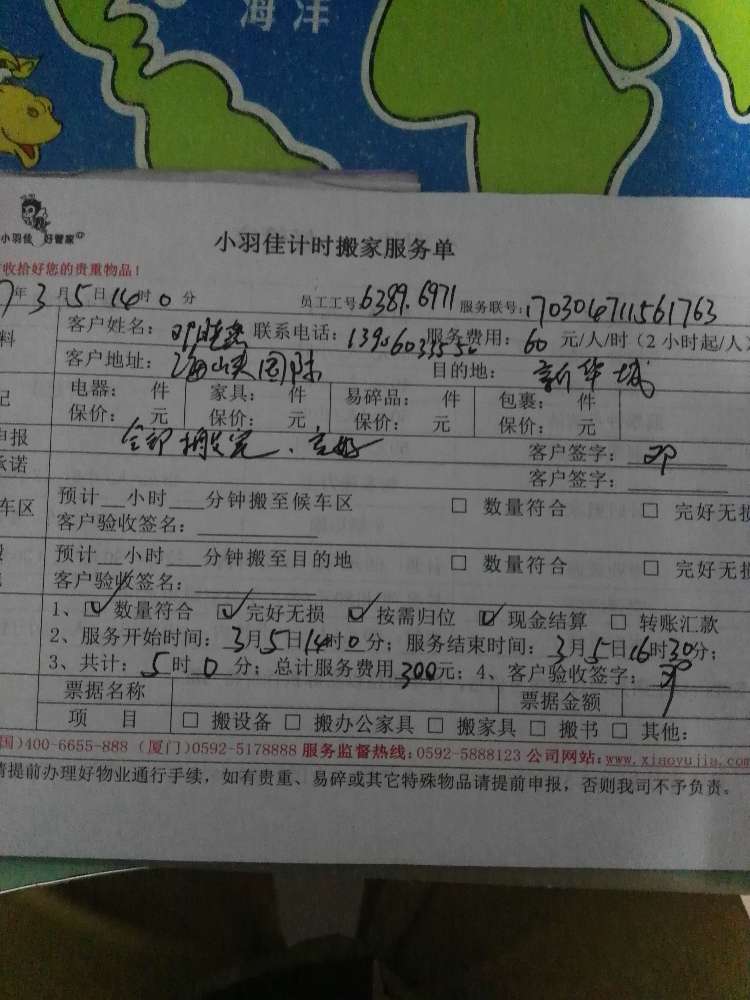 海洋
小羽佳 好管家
小羽佳计时搬家服务单
收拾好您的贵重物品！
7年3月5日14时0分 员工工号:6389.6971 服务联号:170304711561763
客户姓名：邓 联系电话：服务费用：60元/人/时（2小时起/人）
客户地址：海峡国际 目的地：新华城
电器： 件 家具： 件 易碎品： 件 包裹： 件
保价： 元 保价： 元 保价： 元 保价： 元
申报 全部搬完、完好 客户签字：邓
承诺 客户签字：
车区 预计__小时___分钟搬至候车区 □ 数量符合 □ 完好无损
客户验收签名：
预计__小时___分钟搬至目的地 □ 数量符合 □ 完好无损
客户验收签名：
1、☑数量符合 ☑完好无损 ☑按需归位 ☑现金结算 □ 转账汇款
2、服务开始时间：3月5日14时0分；服务结束时间：3月5日16时30分；
3、共计：5时0分；总计服务费用300元；4、客户验收签字：邓
票据名称 票据金额
项 目 □ 搬设备 □ 搬办公家具 □ 搬家具 □ 搬书 □ 其他：
国)400-6655-888 (厦门)0592-5178888 服务监督热线:0592-5888123 公司网站:www.xiaoyujia.com
请提前办理好物业通行手续，如有贵重、易碎或其它特殊物品请提前申报，否则我司不予负责。